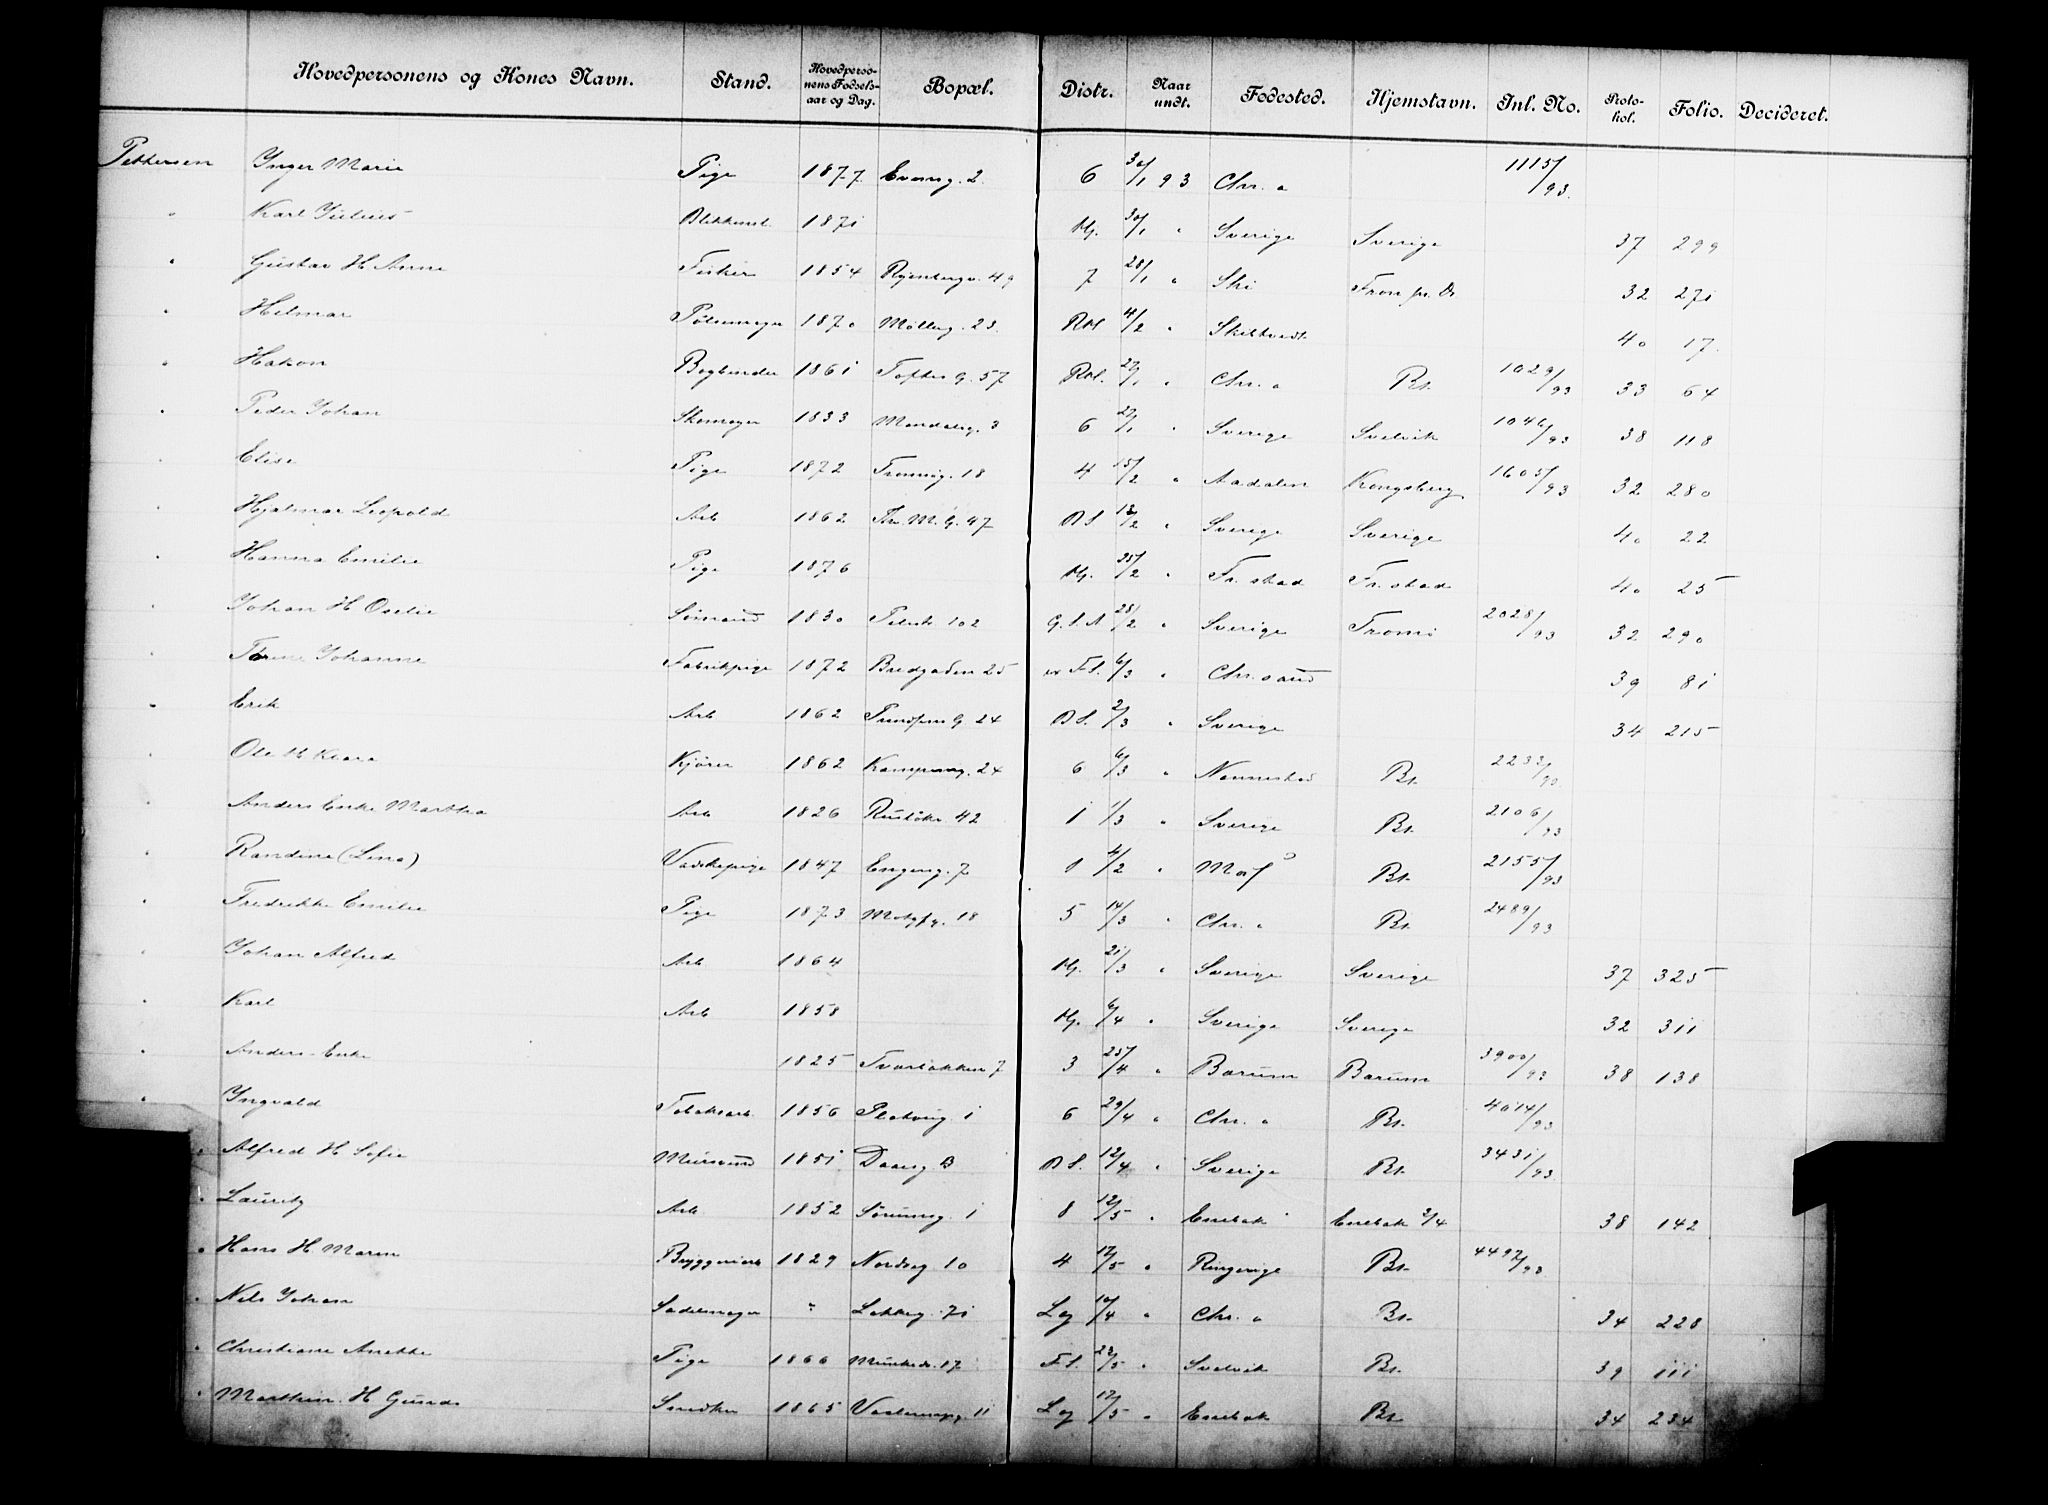 Hovedpersonens og Kones Navn. Stand. Hovedperso-nens Fødsels-aar og Dag. Bopæl. Distr. Naar undt. Fødested. Hjemstavn. Inl. No. Proto-kol. Folio. Decideret.
Pettersen Ynger Marie Pige 1877 Eversg. 2. 6 30/1 93 Chr. a 1115/93.
" Karl Julius 1871 Hj. 30/1 " Sverige Sverige 37 299
" Gustav H Anna Fisker 1854 Ryenbergv. 49 7 28/1 " Ski 32 271
" Helmar Pølsemager 1870 Møllerg. 23. Rkl 4/2 " Skibtvedt 40 17.
" Hakon Bogbinder 1861 Toftes G. 57 Rkl. 27/1 " Chr. a Bt. 1029/93 33 64
" Peder Johan Skomager 1833 Mandalsg. 3 6 27/1 " Sverige Svelvik 1046/93 38 118
" Elise Pige 1872 Tromsøg. 18 4 15/2 " Aadalen Kongsberg 1605/93 32 280
" Hjalmar Leopold Arb 1862 Thv. M. G. 47 B S. 13/2 " Sverige Sverige 40 22
" Hanna Emilie Pige 1876 Hj. 25/2 " Fr. stad Fr. stad 40 25
" Johan H Oselie Sømand 1830 102 G. S. A 28/2 " Sverige Tromø 2028/93 32 290
" Johanne Fabrikpige 1872 Bredgaden 25 Fl. 6/3 " Chr. sand 39 81
" Erik Arb 1862 G 24 B S. 2/3 " Sverige 34 215
" Ole H Klara Kjører 1862 Kampensg. 24 6 6/3 " Nannestad Bt. 2232/93
" Anders Enke Marthea Arb 1826 Ruseløkv 42 1 1/3 " Sverige Bt. 2106/93
" Randine (Lina) Vadskepige 1847 Engensg. 7 1 4/2 " Moss Bt. 2155/93
" Fredrikke Emilie Pige 1873 Motzf g. 18 5 14/3 " Chr. a Bt. 2489/93
" Johan Alfred Arb 1864 Hj. 21/3 " Sverige Sverige 37 325
" Karl Arb 1858 Hj. 6/4 " Sverige Sverige 32 311
" Anders Enke 1825 Tværbakken 7 3 25/4 " Bærum Bærum 3900/93 38 138
" Yngvald Tobaksarb. 1856 Platousg 1 6 29/4 " Chr. a Bt. 4014/93
" Alfred H Sofie Mursvend 1851 Daaesg B B S. 12/4 " Sverige Bt. 3431/93.
" Lauritz Arb. 1852 Sørumsg. 1 8 12/5 " Enebak Enebak 2/4 38 142
" Hans H. Maren Bryggeriarb 1829 Nordreg 10 4 12/5 " Ringerige Bt. 4492/93
" Nels Johan Sadelmager " Løkkeg. 71 Lg 10/4 " Chr. a Bt. 34 228
" Christiane Anette Pige 1866 Munkeds. 17 Fl. 23/5 " Svelvik Bt. 39 111
" Marthin H Gunda Snedker 1865 11 Lg 12/5 " Enebak Bt. 34 234